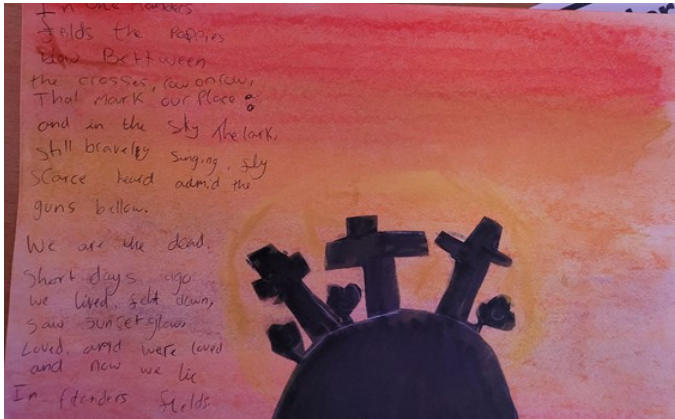 In the flanders
fields the Poppies
blow Bettween
the crosses, row on row,
That Mark our Place:
and in the sky The lark,
still bravely singing, fly
Scarce heard admid the
guns bellow.
We are the dead.
Short days ago
we lived, felt dawn,
saw sunset glow,
Loved, and were loved
and now we lie
In flenders fields.